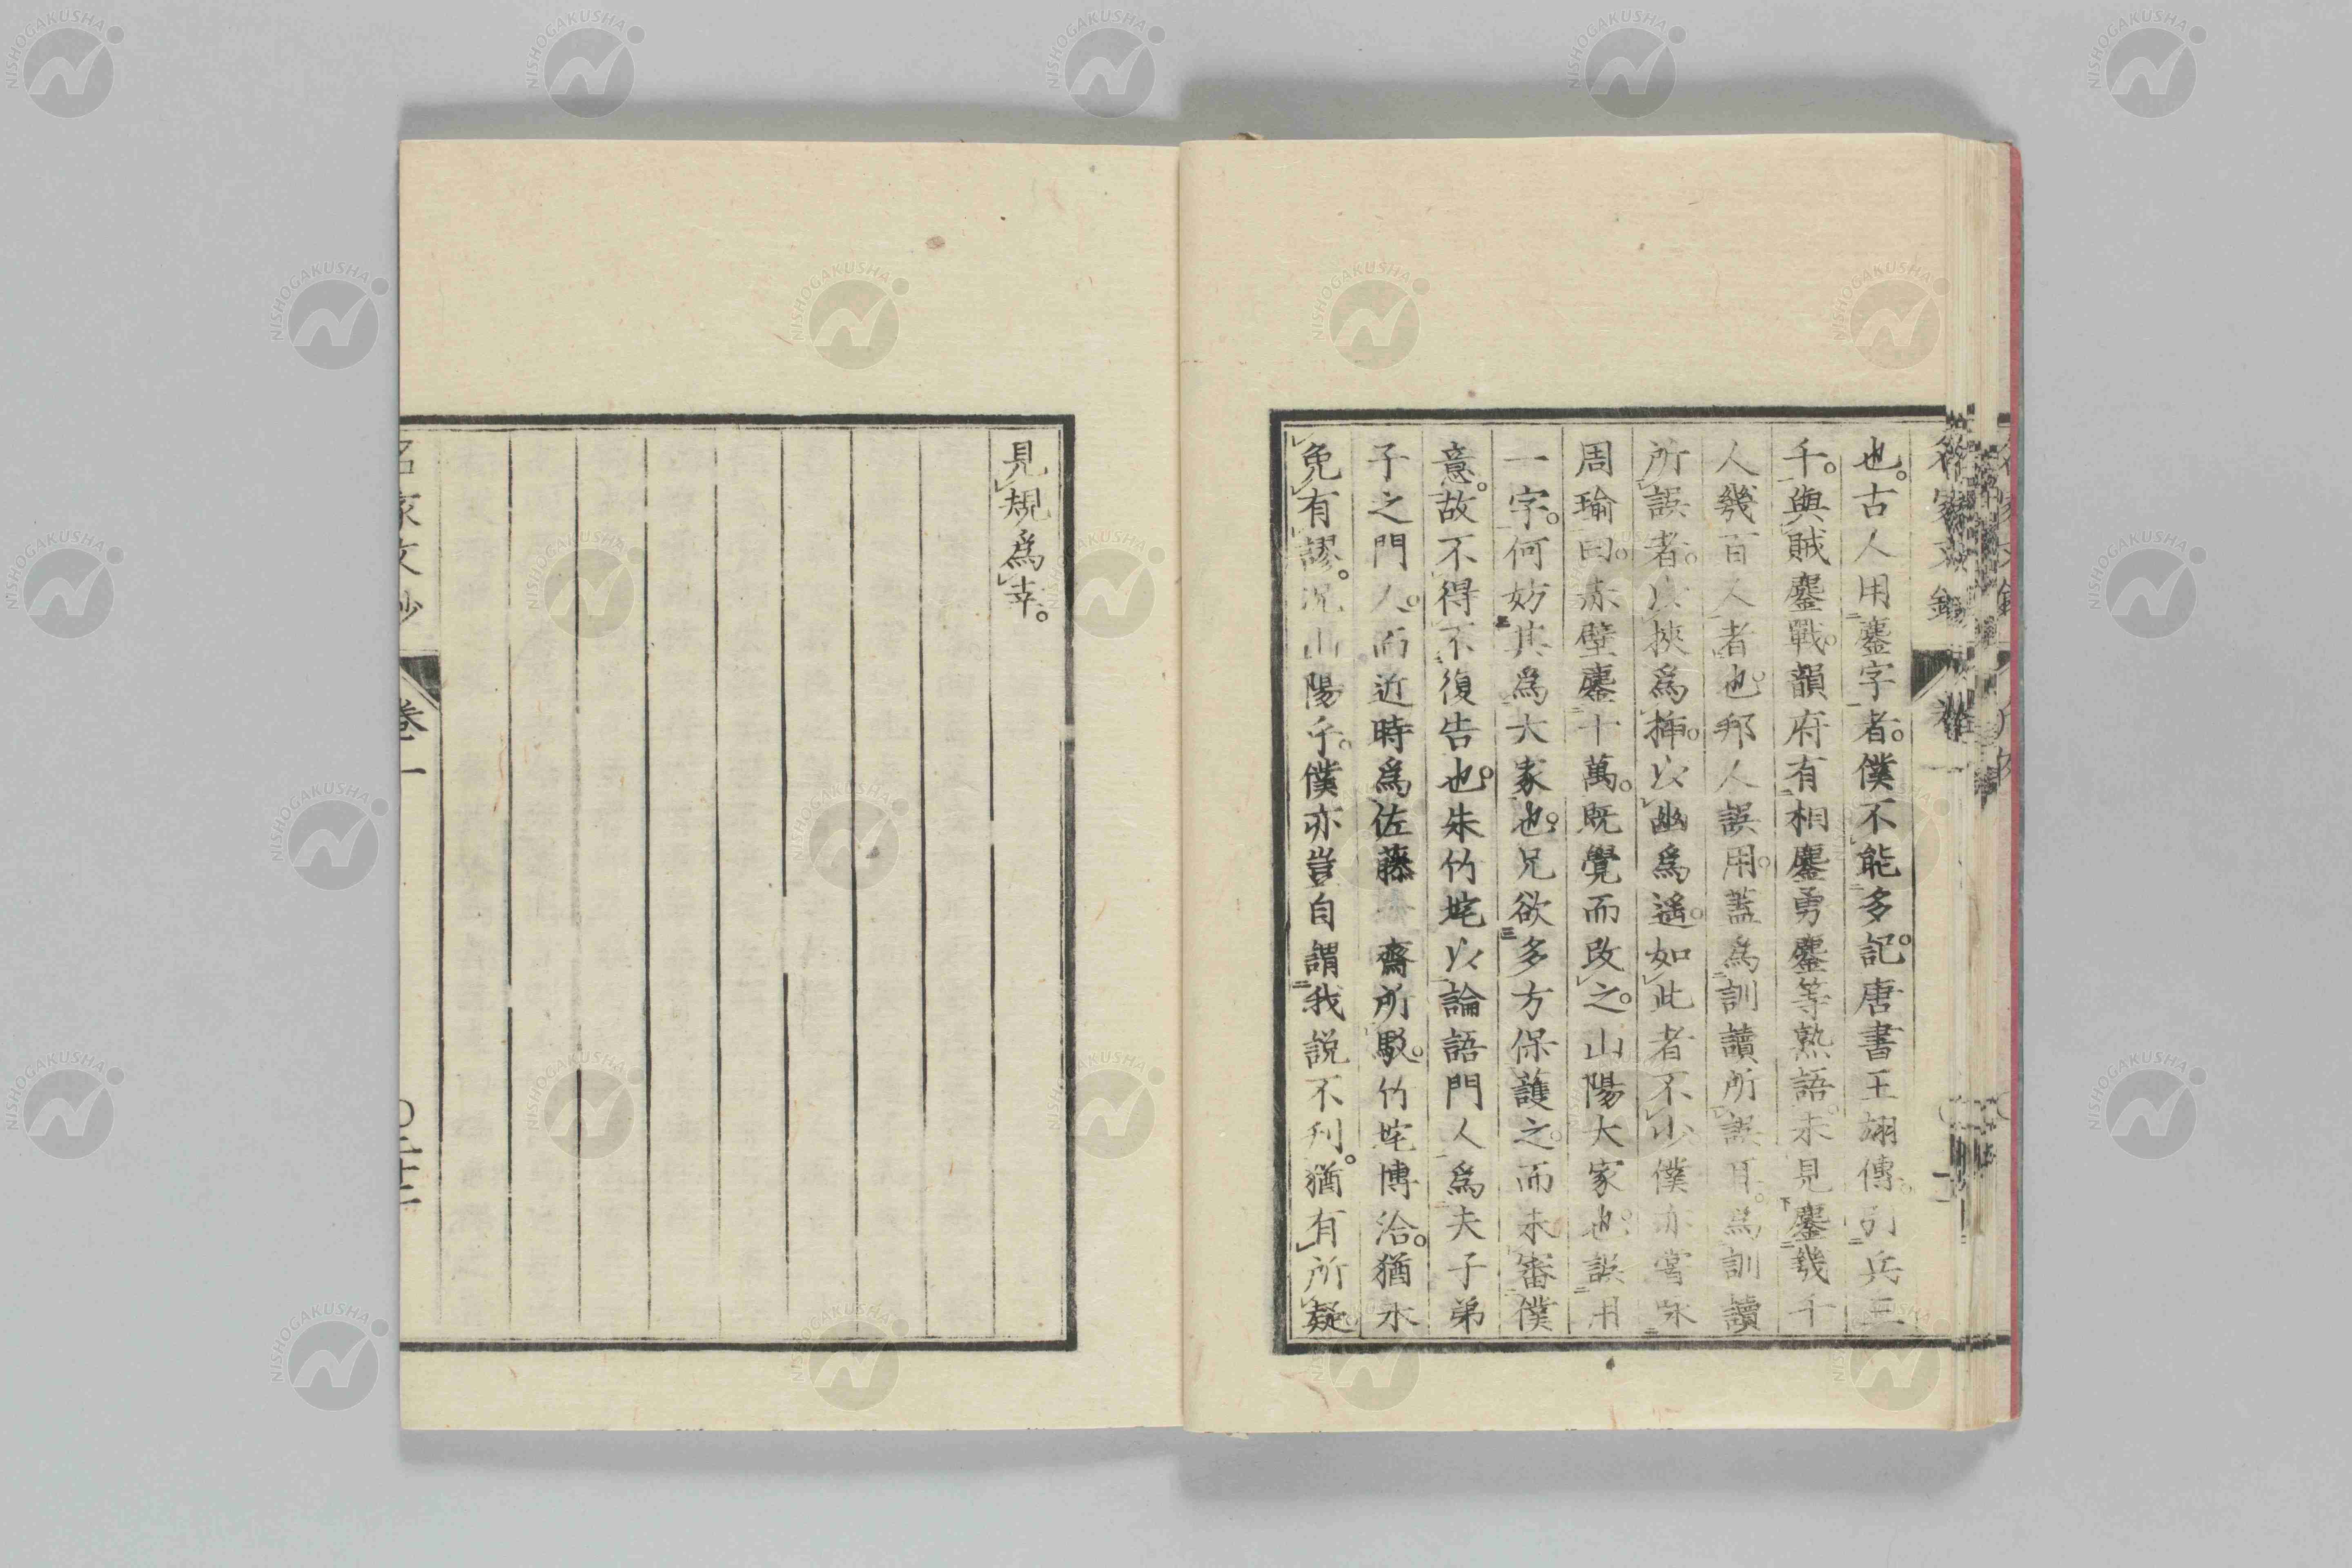 也。古人用鏖字者。僕不能多記。唐書王翃傳。引兵三
千。與賊鏖戰。韻府有相鏖勇鏖等熟語。未見鏖幾千
人幾百人者也。邦人誤用。蓋爲訓讀所誤耳。爲訓讀
所誤者。以挾爲挿。以幽爲遥。如此者不少。僕亦嘗咏
周瑜曰。赤壁鏖十萬。既覺而改之。山陽大家也。誤用
一字。何妨其爲大家也。兄欲多方保護之。而未審僕
意。故不得不復告也。朱竹垞以論語門人爲夫子弟
子之門人。而近時爲佐藤一齋所駁。竹垞博洽。猶未
免有謬。況山陽乎。僕亦豈自謂我説不刋。猶有所疑。
見規爲幸。
名家文抄 卷一 〇二十二
NISHOGAKUSHA